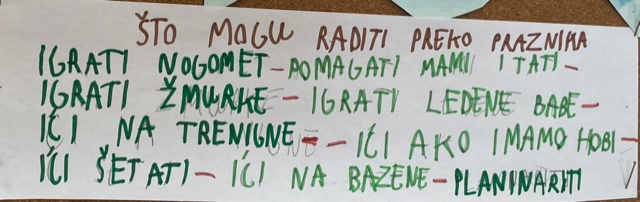 ŠTO MOGU RADITI PREKO PRAZNIKA
IGRATI NOGOMET-POMAGATI MAMI I TATI-
IGRATI ŽMURKE - IGRATI LEDENE BABE-
IĆI NA TRENIGNE - - IĆI AKO IMAMO HOBI-
IĆI ŠETATI- IĆI NA BAZENE-PLANINARITI